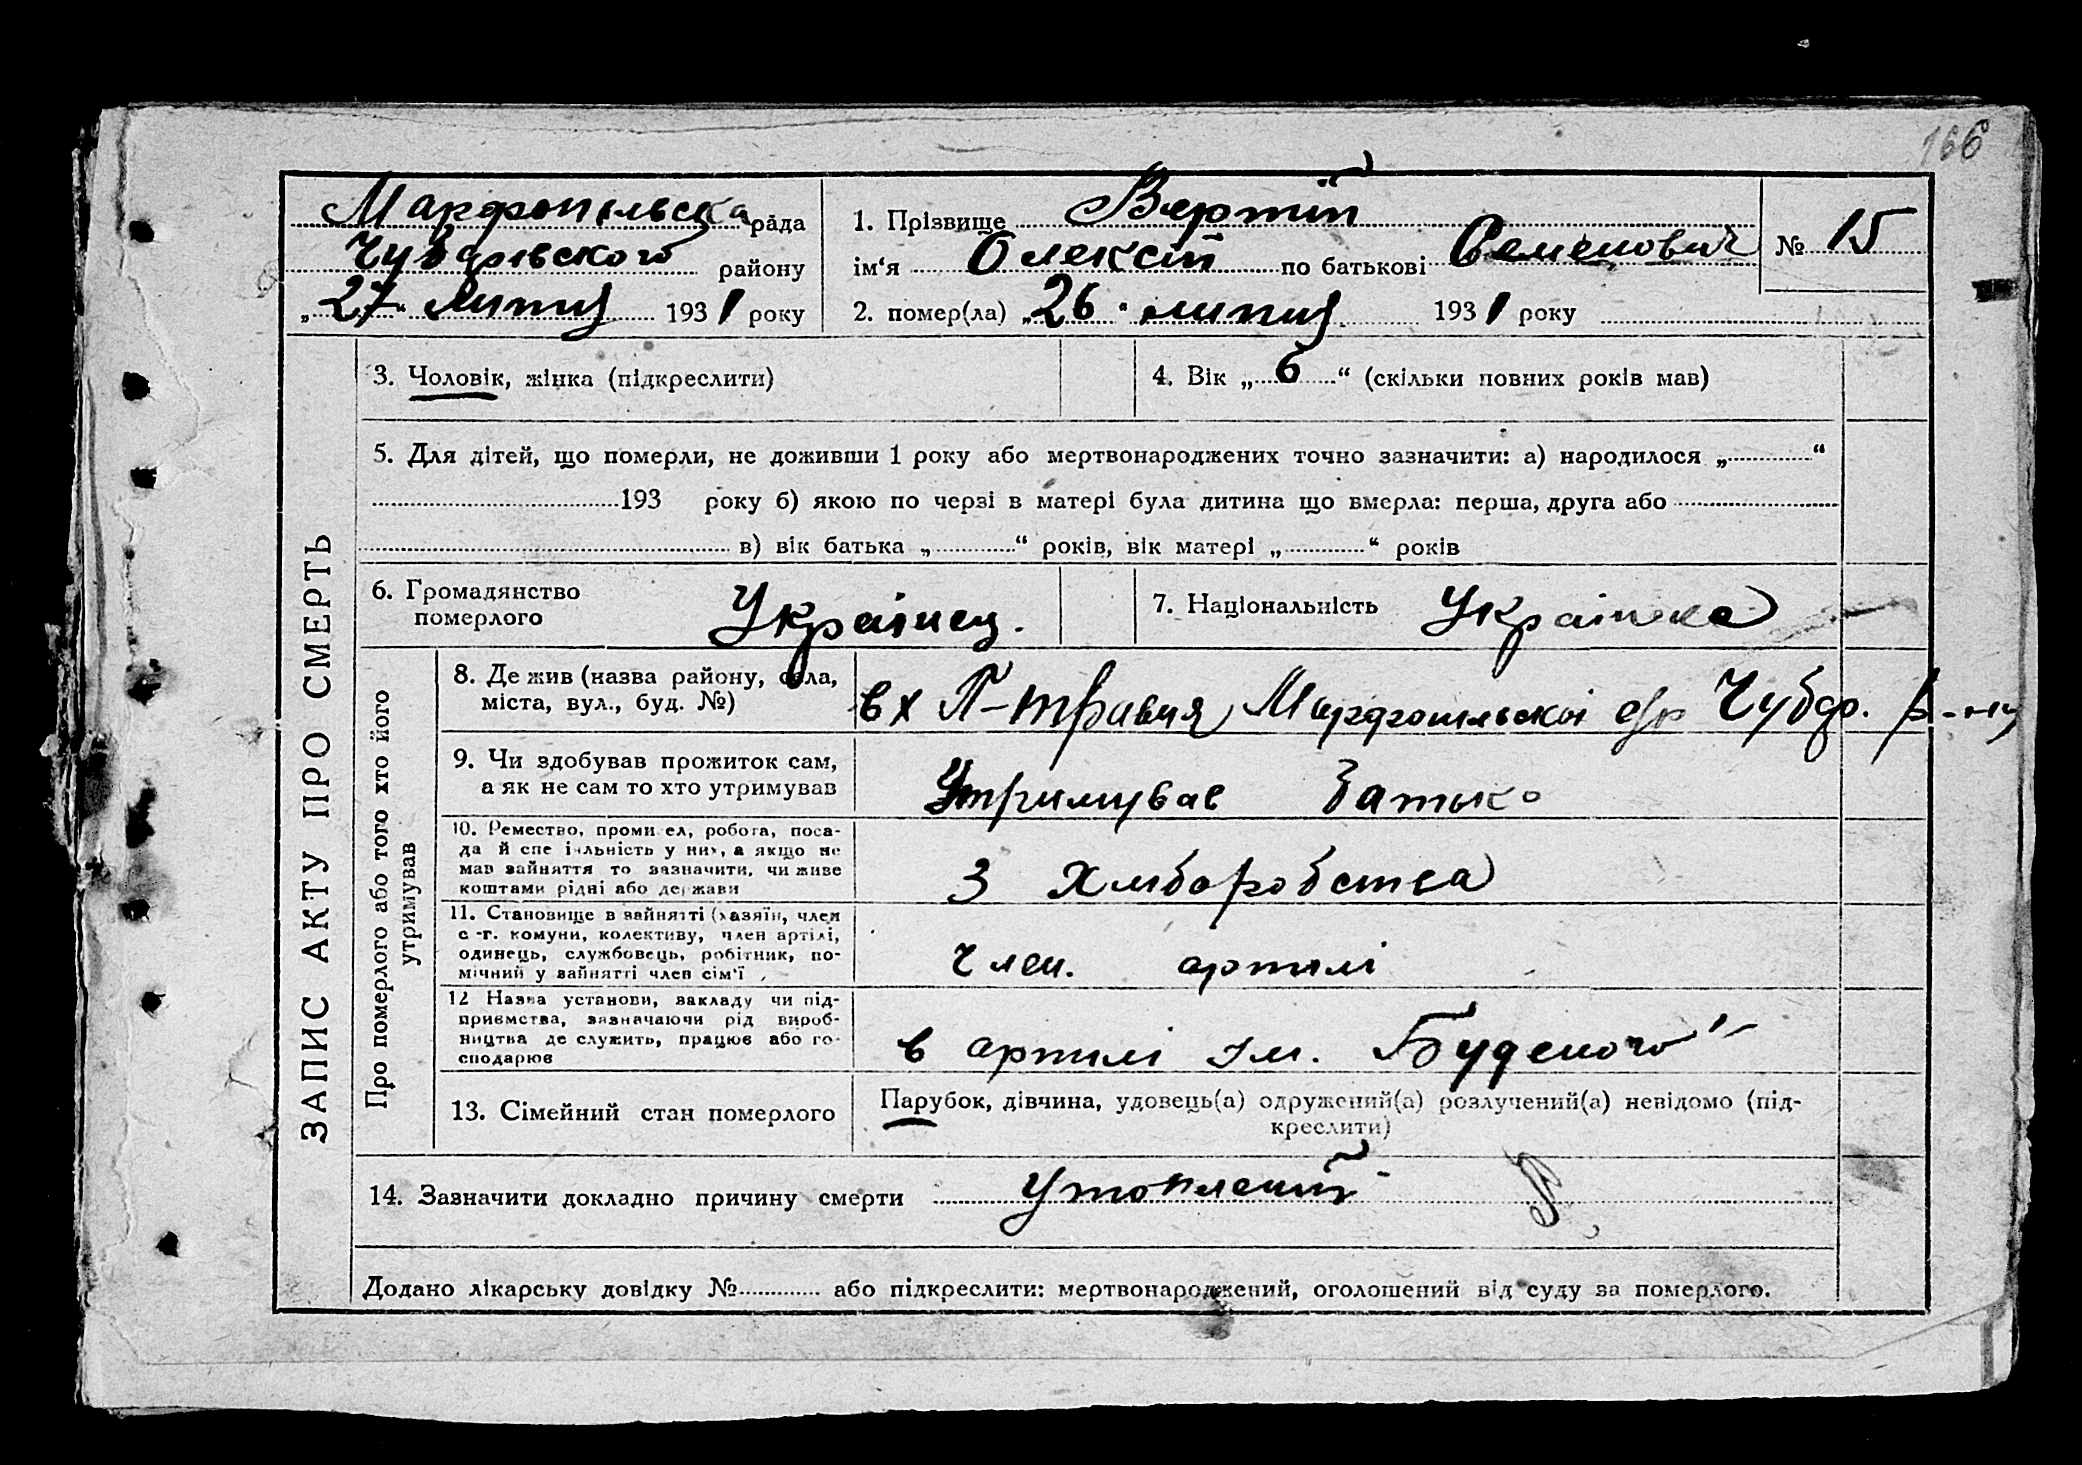 166
Марфопільська рада
Чубарівського району
„27“ липня 1931 року
1. Прізвище Вертій
ім‘я Олексій по батькові Семенович
2. помер(ла) „26“ липня 1931 року
№ 15
ЗАПИС АКТУ ПРО СМЕРТЬ
3. Чоловік, жінка (підкреслити)
4. Вік „6“ (скільки повних років мав)
5. Для дітей, що померли, не доживши 1 року або мертвонароджених точно зазначити: а) народилося „ “
193 року б) якою по черзі в матері була дитина що вмерла: перша, друга або
в) вік батька „ “ років, вік матері „ “ років
6. Громадянство
померлого Українец.
7. Національність Українка
Про померлого або того хто його
утримував
8. Де жив (назва району, села,
міста, вул., буд. №)
в х П-травня, Марфопільскоі с/р Чубар. р-ну
9. Чи здобував прожиток сам,
а як не сам то хто утримував
Утримував Батько
10. Ремество, промисел, робота, поса-
да й спеціяльність у них, а якщо не
мав зайняття то зазначити, чи живе
коштами рідні або держави
З Хліборобства
11. Становище в зайнятті (хазяїн, член
с.-г. комуни, колективу, член артілі,
одинець, службовець, робітник, по-
мічний у зайнятті член сім‘ї
Член. артилі
12 Назва установи, закладу чи під-
приємства, зазначаючи рід вироб-
ництва де служить, працює або го-
сподарює
в артилі ім. Буденого"
13. Сімейний стан померлого
Парубок, дівчина, удовець(а) одружений(а) розлучений(а) невідомо (під-
креслити)
14. Зазначити докладно причину смерти Утоплений
Додано лікарську довідку № або підкреслити: мертвонароджений, оголошений від суду за померлого.